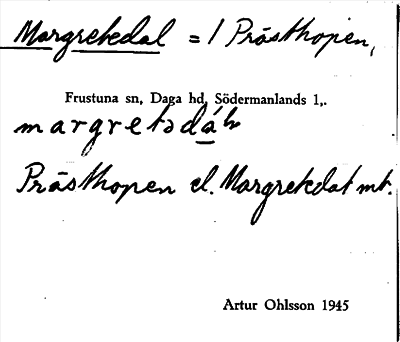 Margretedal = 1 Prästhopen,
Frustuna sn, Daga hd, Södermanlands l,.
margretədáh
Prästhopen el. Margretedal mt.
Artur Ohlsson 1945